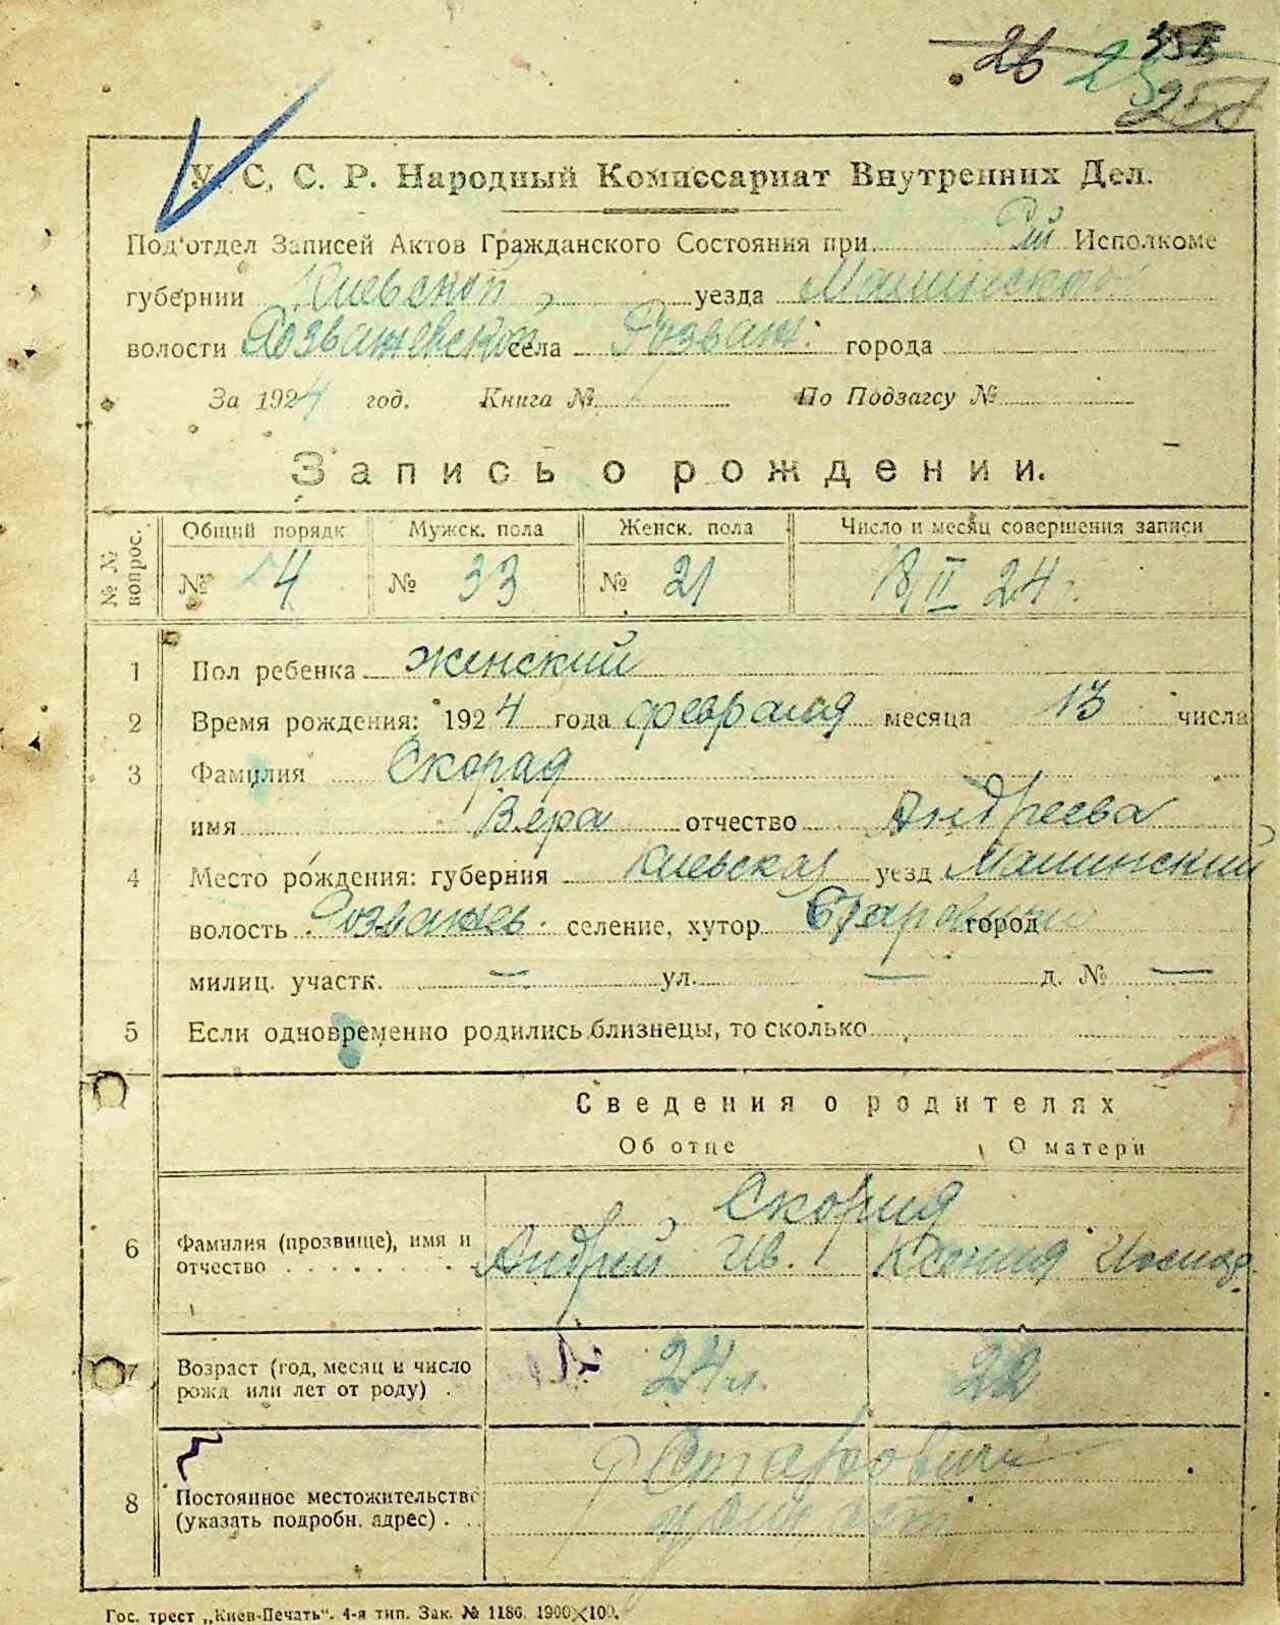 26 23 257
У. С. С. Р. Народный Комиссариат Внутренних Дел.
Под'отдел Записей Актов Гражданского Состояния при Рай Исполкоме
губернии Киевской, уезда Малинского
волости Розважевской села Розваж. города
За 1924 год. Книга № По Подзагсу №
Запись о рождении.
№№ вопрос. Общий порядк Мужск. пола Женск. пола Число и месяц совершения записи
№ 54 № 33 № 21 18/II 24 г.
1 Пол ребенка женский
2 Время рождения: 1924 года февраля месяца 13 числа
3 Фамилия Скорад
имя Вера отчество Андреева
4 Место рождения: губерния Киевская уезд Малинский
волость Розважев. селение, хутор Старовичи город
милиц. участк. — ул. — д. № —
5 Если одновременно родились близнецы, то сколько
Сведения о родителях
Об отце О матери
Скорид
6 Фамилия (прозвище), имя и Андрей Ив. Ксения
отчество
7 Возраст (год, месяц и число 24 л. 22
рожд или лет от роду) .
Старовичи
8 Постоянное местожительство
(указать подробн. адрес) . .
Гос. трест „Киев-Печать“. 4-я тип. Зак. № 1186. 1900×100.